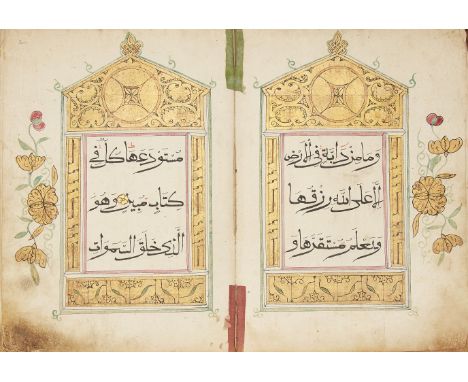 وما من دابة في الارض
الا على الله رزقها
ويعلم مستقرها و
مستودعها كل في
كتاب مبين وهو
الذي خلق السموات